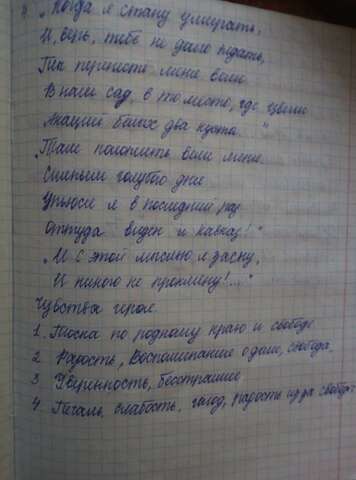 „Когда я стану умирать,
И, верь, тебе не долго ждать,
Ты перенесть меня вели
В наш сад, в то место, где цвели
Акаций белых два куста."
„Там положить вели меня.
Сияньем голубого дня
Упьюся я в последний раз.
Оттуда виден и Кавказ!"
„И с этой мыслью я засну,
И никого не прокляну!..."
Чувства героя.
1. Тоска по родному краю и свободе
2. Радость, Воспоминание о доме, свобода.
3. Уверенность, бесстрашие
4. Печаль, слабость, голод, радость из за свободы